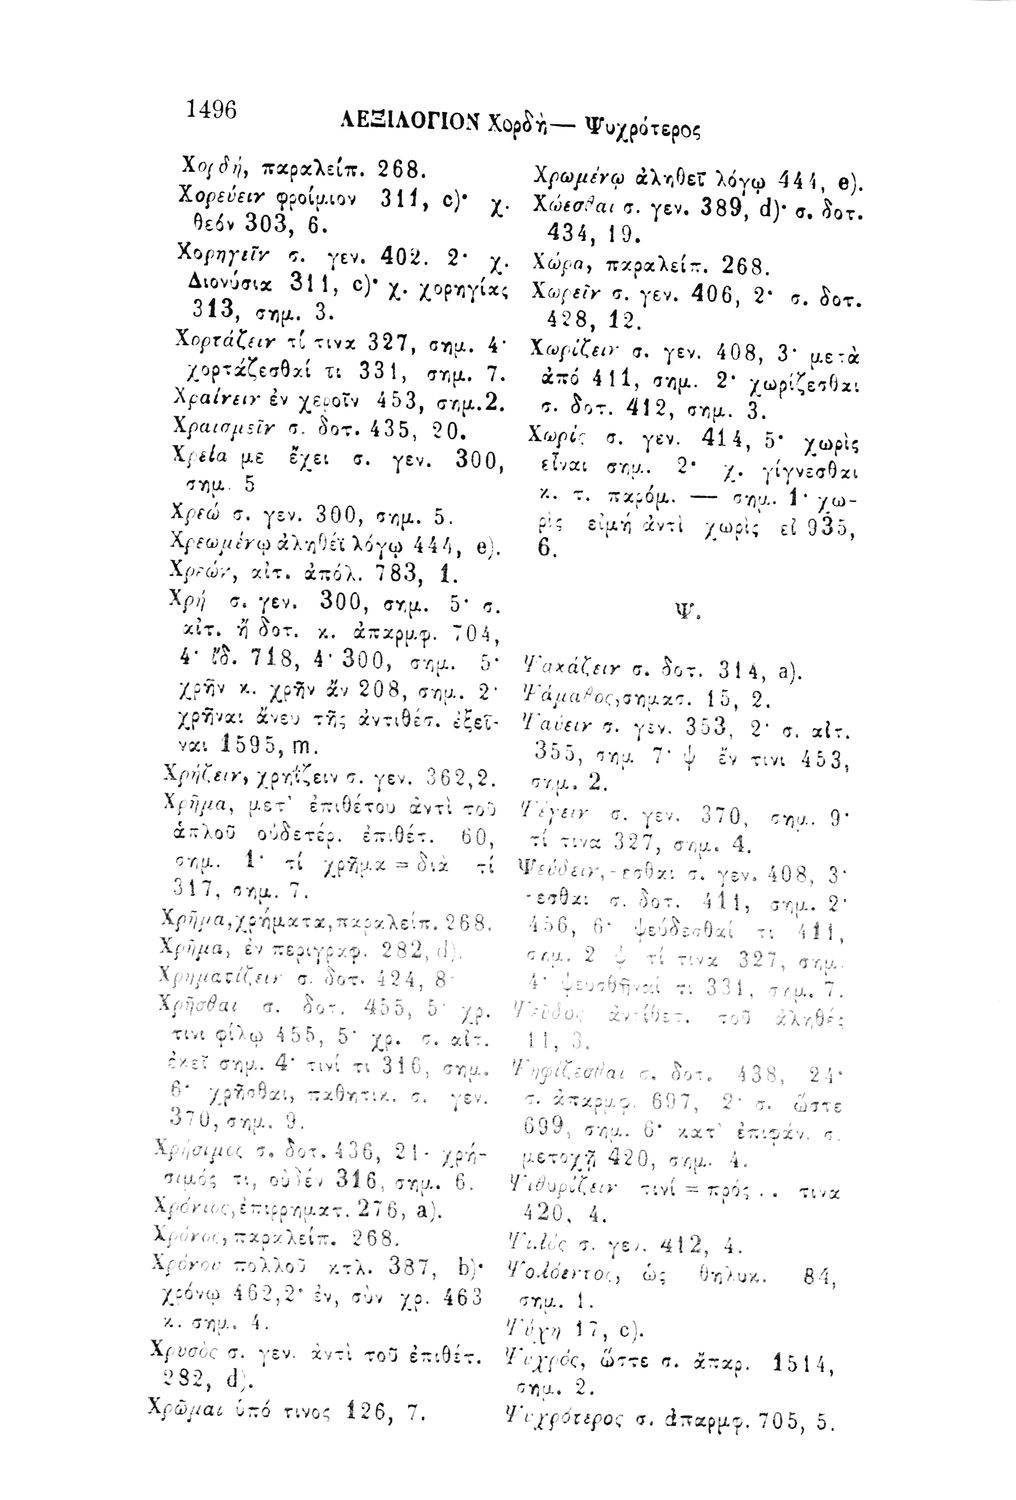 1496
ΛΕΞΙΛΟΓΙΟΝ Χορδὴ— Ψυχρότερος
Χορδή, παραλείπ. 268.
Χορεύειν φροίμιον 311, c)· χ.
θεόν 303, 6.
Χορηγεῖν σ. γεν. 402. 2· χ.
Διονύσια 311, c)· χ. χορηγίας
313, σημ. 3.
Χορτάζειν τί τινα 327, σημ. 4·
χορτάζεσθαί τι 331, σημ. 7.
Χραίνειν ἐν χεροῖν 453, σημ.2.
Χραισμεῖν σ. δοτ. 435, 20.
Χρεία με ἔχει σ. γεν. 300,
σημ. 5
Χρεώ σ. γεν. 300, σημ. 5.
Χρεωμένῳ ἀληθέϊ λόγῳ 444, e).
Χρεών, αἰτ. ἀπόλ. 783, 1.
Χρή σ. γεν. 300, σημ. 5· σ.
αἰτ. ἤ δοτ. κ. ἀπαρμφ. 704,
4· ἰδ. 718, 4· 300, σημ. 5·
χρῆν κ. χρῆν ἄν 208, σημ. 2·
χρῆναι ἄνευ τῆς ἀντιθέσ. ἐξεῖ-
ναι 1595, m.
Χρήζειν, χρηΐζειν σ. γεν. 362,2.
Χρῆμα, μετ' ἐπιθέτου ἀντὶ τοῦ
ἁπλοῦ οὐδετέρ. ἐπιθέτ. 60,
σημ. 1· τί χρῆμα = διὰ τί
317, σημ. 7.
Χρῆμα, χρήματα, παραλείπ. 268.
Χρῆμα, ἐν περιγραφ. 282, d).
Χρηματίζειν σ. δοτ. 424, 8·
Χρῆσθαι σ. δοτ. 455, 5· χρ.
τινι φίλῳ 455, 5· χρ. σ. αἰτ.
ἐκεῖ σημ. 4· τινί τι 316, σημ.
6· χρῆσθαι, παθητικ. σ. γεν.
370, σημ. 9.
Χρήσιμος σ. δοτ. 436, 21· χρή-
σιμός τι, οὐδέν 316, σημ. 6.
Χρόνιος, ἐπιρρηματ. 276, a).
Χρόνος, παραλείπ. 268.
Χρόνου πολλοῦ κτλ. 387, b)·
χρόνῳ 462,2· ἐν, σὺν χρ. 463
κ. σημ. 4.
Χρυσὸς σ. γεν. ἀντὶ τοῦ ἐπιθέτ.
282, d).
Χρῶμαι ὑπό τινος 126, 7.
Χρωμένῳ ἀληθεῖ λόγῳ 444, e).
Χώεσθαι σ. γεν. 389, d)· σ. δοτ.
434, 19.
Χώρα, παραλείπ. 268.
Χωρεῖν σ. γεν. 406, 2· σ. δοτ.
428, 12.
Χωρίζειν σ. γεν. 408, 3· μετὰ
ἀπό 411, σημ. 2· χωρίζεσθαι
σ. δοτ. 412, σημ. 3.
Χωρίς σ. γεν. 414, 5· χωρὶς
εἶναι σημ. 2· χ. γίγνεσθαι
κ. τ. παρόμ. — σημ. 1· χω-
ρὶς εἰμή ἀντὶ χωρὶς εἰ 935,
6.
Ψ.
Ψακάζειν σ. δοτ. 314, a).
Ψάμαθος, σημασ. 15, 2.
Ψαύειν σ. γεν. 353, 2· σ. αἰτ.
355, σημ. 7· ψ ἔν τινι 453,
σημ. 2.
Ψέγειν σ. γεν. 370, σημ. 9·
τί τινα 327, σημ. 4.
Ψεύδειν, -εσθαι σ. γεν. 408, 3·
-εσθαι σ. δοτ. 411, σημ. 2·
456, 6· ψεύδεσθαί τι 411,
σημ. 2 ψ τί τινα 327, σημ.
4· ψευσθῆναί τι 331, σημ. 7.
Ψεῦδος ἀντίθετ. τοῦ ἀληθές
11, 3.
Ψηφίζεσθαι σ. δοτ. 438, 24·
σ. ἀπαρμφ. 697, 2· σ. ὥστε
699, σημ. 6· κατ' ἐπιφάν. σ.
μετοχῇ 420, σημ. 4.
Ψιθυρίζειν τινί = πρός . . τινα
420, 4.
Ψιλός σ. γεν. 412, 4.
Ψολόεντος, ὡς θηλυκ. 84,
σημ. 1.
Ψύχη 17, c).
Ψυχρός, ὥστε σ. ἄπαρ. 1514,
σημ. 2.
Ψυχρότερος σ. ἀπαρμφ. 705, 5.